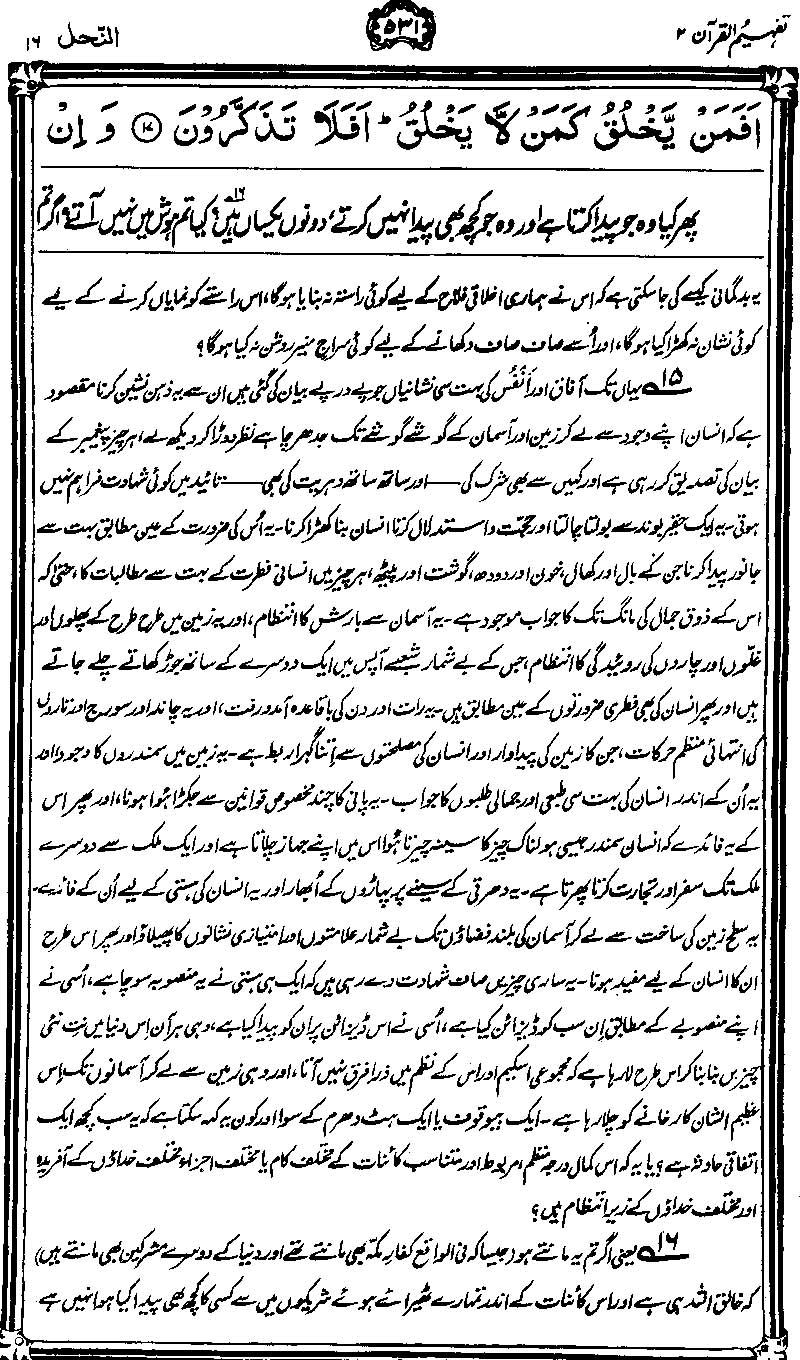 تفہیم القرآن ۲
۵۳۱
النّحل ۱۶
اَفَمَنْ يَّخْلُقُ كَمَنْ لَّا يَخْلُقُ ؕ اَفَلَا تَذَكَّرُوْنَ ﴿۱۷﴾ وَ اِنْ
پھر کیا وہ جو پیدا کرتا ہے اور وہ جو کچھ بھی پیدا نہیں کرتے، دونوں یکساں ہیں؟۱۶ کیا تم ہوش میں نہیں آتے؟ اگر تم
یہ بدگمانی کیسے کی جا سکتی ہے کہ اس نے ہماری اخلاقی فلاح کے لیے کوئی راستہ نہ بنایا ہوگا، اس راستے کو نمایاں کرنے کے لیے
کوئی نشان نہ کھڑا کیا ہوگا، اور اُسے صاف صاف دکھانے کے لیے کوئی سراجِ منیر روشن نہ کیا ہوگا؟
۱۵ یہاں تک آفاق اور اَنفُس کی بہت سی نشانیاں جو پے در پے بیان کی گئی ہیں ان سے یہ ذہن نشین کرنا مقصود
ہے کہ انسان اپنے وجود سے لے کر زمین اور آسمان کے گوشے گوشے تک جدھر چاہے نظر دوڑا کر دیکھ لے، ہر چیز پیغمبر کے
بیان کی تصدیق کر رہی ہے اور کہیں سے بھی شرک کی —— اور ساتھ ساتھ دہریت کی بھی —— تائید میں کوئی شہادت فراہم نہیں
ہوتی۔ یہ ایک حقیر بوند سے بولتا چالتا اور حجت و استدلال کرتا انسان بنا کھڑا کرنا۔ یہ اُس کی ضرورت کے عین مطابق بہت سے
جانور پیدا کرنا جن کے بال اور کھال، خون اور دودھ، گوشت اور پیٹھ، ہر چیز میں انسانی فطرت کے بہت سے مطالبات کا، حتیٰ کہ
اس کے ذوقِ جمال کی مانگ تک کا جواب موجود ہے۔ یہ آسمان سے بارش کا انتظام، اور یہ زمین میں طرح طرح کے پھلوں اور
غلّوں اور چاروں کی روئیدگی کا انتظام، جس کے بے شمار شعبے آپس میں ایک دوسرے کے ساتھ جوڑ کھاتے چلے جاتے
ہیں اور پھر انسان کی بھی فطری ضرورتوں کے عین مطابق ہیں۔ یہ رات اور دن کی باقاعدہ آمدورفت، اور یہ چاند اور سورج اور تاروں
کی انتہائی منظم حرکات، جن کا زمین کی پیداوار اور انسان کی مصلحتوں سے اتنا گہرا ربط ہے۔ یہ زمین میں سمندروں کا وجود اور
یہ اُن کے اندر انسان کی بہت سی طبعی اور جمالی طلبوں کا جواب۔ یہ پانی کا چند مخصوص قوانین سے جکڑا ہوا ہونا، اور پھر اس
کے یہ فائدے کہ انسان سمندر جیسی ہولناک چیز کا سینہ چیرتا ہوا اس میں اپنے جہاز چلاتا ہے اور ایک ملک سے دوسرے
ملک تک سفر اور تجارت کرتا پھرتا ہے۔ یہ دھرتی کے سینے پر پہاڑوں کے اُبھار اور یہ انسان کی ہستی کے لیے اُن کے فائدے۔
یہ سطح زمین کی ساخت سے لے کر آسمان کی بلند فضاؤں تک بے شمار علامتوں اور امتیازی نشانوں کا پھیلاؤ اور پھر اس طرح
ان کا انسان کے لیے مفید ہونا۔ یہ ساری چیزیں صاف شہادت دے رہی ہیں کہ ایک ہی ہستی نے یہ منصوبہ سوچا ہے، اُسی نے
اپنے منصوبے کے مطابق اِن سب کو ڈیزائن کیا ہے، اُسی نے اس ڈیزائن پر ان کو پیدا کیا ہے، وہی ہر آن اِس دنیا میں نت نئی
چیزیں بنا بنا کر اس طرح لا رہا ہے کہ مجموعی اسکیم اور اس کے نظم میں ذرا فرق نہیں آتا، اور وہی زمین سے لے کر آسمانوں تک اِس
عظیم الشان کارخانے کو چلا رہا ہے۔ ایک بیوقوف یا ایک ہٹ دھرم کے سوا اور کون یہ کہہ سکتا ہے کہ یہ سب کچھ ایک
اتفاقی حادثہ ہے؟ یا یہ کہ اس کمال درجہ منظم، مربوط اور متناسب کائنات کے مختلف کام یا مختلف اجزاء مختلف خداؤں کے آفریدہ
اور مختلف خداؤں کے زیرِ انتظام ہیں؟
۱۶ یعنی اگر تم یہ مانتے ہو (جیسا کہ فی الواقع کفارِ مکہ بھی مانتے تھے اور دنیا کے دوسرے مشرکین بھی مانتے ہیں)
کہ خالق اللہ ہی ہے اور اس کائنات کے اندر تمہارے ٹھیرائے ہوئے شریکوں میں سے کسی کا کچھ بھی پیدا کیا ہوا نہیں ہے